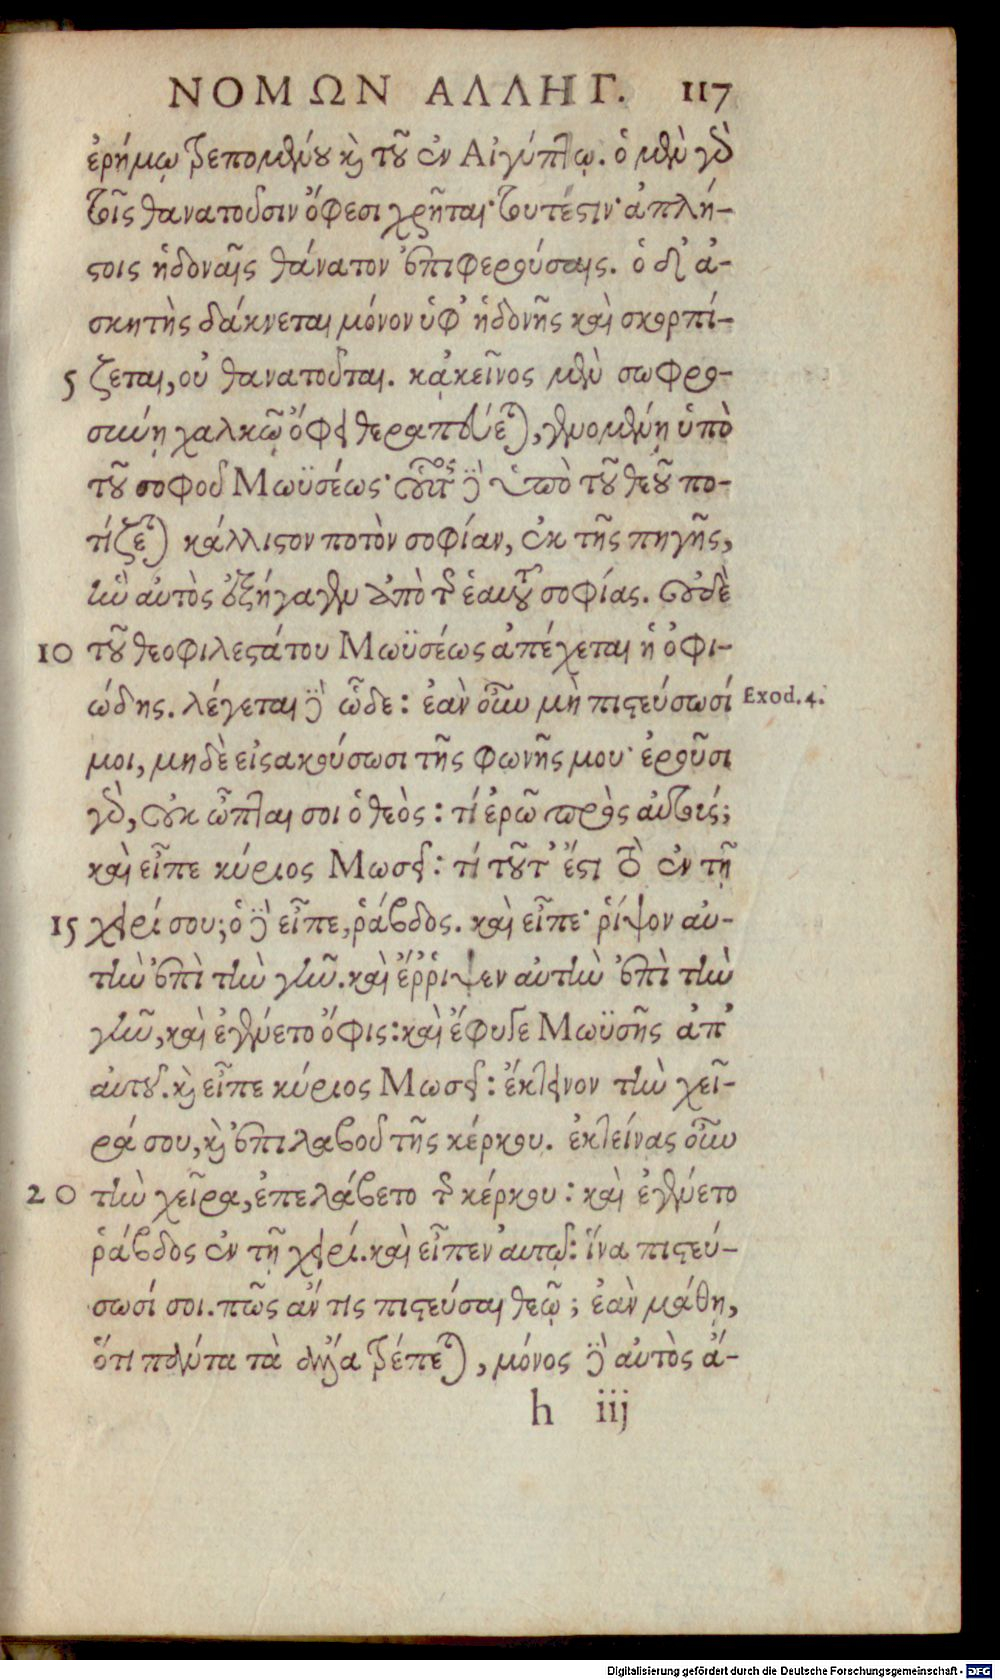 ΝΟΜΩΝ ΑΛΛΗΓ. 117
ἐρήμῳ τρεπομένου καὶ τοῦ ἐν Αἰγύπτῳ. ὁ μὲν γὰρ
τοῖς θανατοῦσιν ὄφεσι χρῆται· τουτέστιν· ἀπλή-
στοις ἡδοναῖς θάνατον ἐπιφερούσαις. ὁ δὲ ἀ-
σκητὴς δάκνεται μόνον ὑφ' ἡδονῆς καὶ σκορπί-
5 ζεται, οὐ θανατοῦται. κᾀκεῖνος μὲν σωφρο-
σύνῃ χαλκῷ ὄφει θεραπεύεται, γενομένῃ ὑπὸ
τοῦ σοφοῦ Μωϋσέως· οὗτος δὲ ὑπὸ τοῦ θεοῦ πο-
τίζεται κάλλιστον ποτὸν σοφίαν, ἐκ τῆς πηγῆς,
ἣν αὐτὸς ἐξήγαγεν ἀπὸ τῆς ἑαυτοῦ σοφίας. Οὐδὲ
10 τοῦ θεοφιλεστάτου Μωϋσέως ἀπέχεται ἡ ὀφι-
ώδης. λέγεται δὲ ὧδε: ἐὰν οὖν μὴ πιστεύσωσί Exod. 4.
μοι, μηδὲ εἰσακούσωσι τῆς φωνῆς μου· ἐροῦσι
γὰρ, οὐκ ὦπταί σοι ὁ θεὸς: τί ἐρῶ πρὸς αὐτούς;
καὶ εἶπε κύριος Μωσεῖ: τί τοῦτ' ἔστι τὸ ἐν τῇ
15 χειρί σου; ὁ δὲ εἶπε, ῥάβδος. καὶ εἶπε· ῥίψον αὐ-
τὴν ἐπὶ τὴν γῆν. καὶ ἔῤῥιψεν αὐτὴν ἐπὶ τὴν
γῆν, καὶ ἐγένετο ὄφις: καὶ ἔφυγε Μωϋσῆς ἀπ'
αὐτοῦ. καὶ εἶπε κύριος Μωσεῖ: ἔκτεινον τὴν χεῖ-
ρά σου, καὶ ἐπιλαβοῦ τῆς κέρκου. ἐκτείνας οὖν
20 τὴν χεῖρα, ἐπελάβετο τῆς κέρκου: καὶ ἐγένετο
ῥάβδος ἐν τῇ χειρί. καὶ εἶπεν αὐτῷ: ἵνα πιστεύ-
σωσί σοι. πῶς ἄν τις πιστεύσαι θεῷ; ἐὰν μάθῃ,
ὅτι πάντα τὰ ἄλλα τρέπεται, μόνος δὲ αὐτὸς ἄ-
h iij
Digitalisierung gefördert durch die Deutsche Forschungsgemeinschaft - DFG